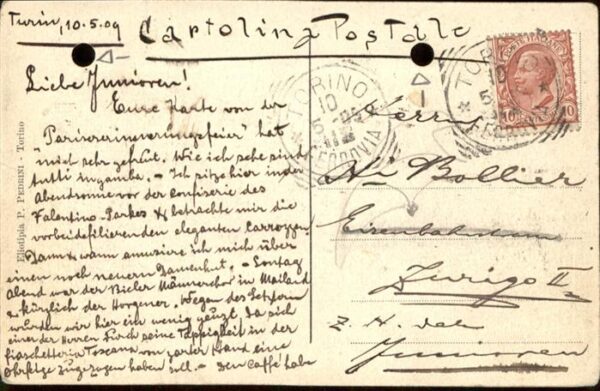 Turin, 10.5.09
Cartolina Postale
Liebe Junioren!
Eure Karte von der
"Pariser erinnerungsfeier" hat
mich sehr gefreut. Wie ich sehe sind
tutti in gamba. - Ich sitze hier in der
Abendsonne vor der Confiserie des
Valentino-Parkes & betrachte mir die
vorbeidefilierenden eleganten Carrozzen!
Dann & wann amusire ich mich über
einen noch neuern Damenhut. - Sontag
Abend war der Bieler Männerchor in Mailand
& kürzlich der Horgener. Wegen des
wurden wir hier ein wenig geuzt. Da sich
einer der Herren durch seine Täppigkeit in der
Fiaschetteria Toscana von zarter Hand eine
Ohrfeige zugezogen haben soll. - Den Caffé habe
Eliotipia P. PEDRINI - Torino
TORINO
10
5
FERROVIA
TORINO
10
5
FERROVIA
10
10
Herrn
Bollier
Eisenbahnbeam
Zurigo II
z. H. der
Junioren